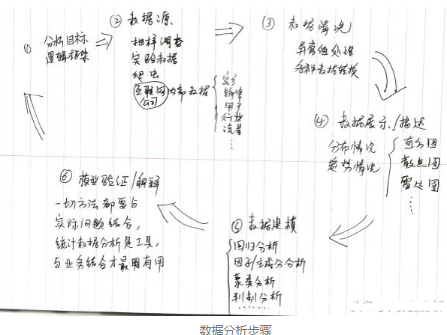 ①
分析目标
逻辑框架
② 数据源
抽样调查
实验数据
爬虫
互联网内部数据
公司
交易
销售
用户
行为
流量
③ 数据清洗
异常值处理
④ 数据展示/描述
分布情况
趋势情况
直方图
散点图
雷达图
……
⑤ 数据建模
回归分析
因子/主成分分析
聚类分析
判别分析
……
⑥ 模型验证/解释
一切方法都要与
实际问题结合,
统计数据分析是工具,
与业务结合才最有用
数据分析步骤